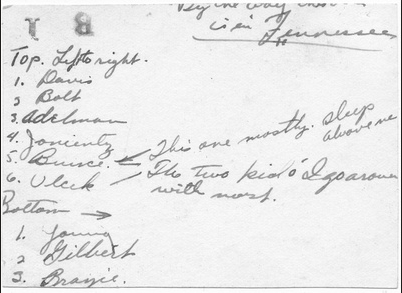 By the way this
is in Tennessee
Top. Left to right.
1. Davis
2 Bolt
3. Adelman
4.
5. Bunce. This one mostly. sleep above me
6. Ulcek The two kids I go around
with most.
Bottom →
1. Young
2 Gilbert
3.